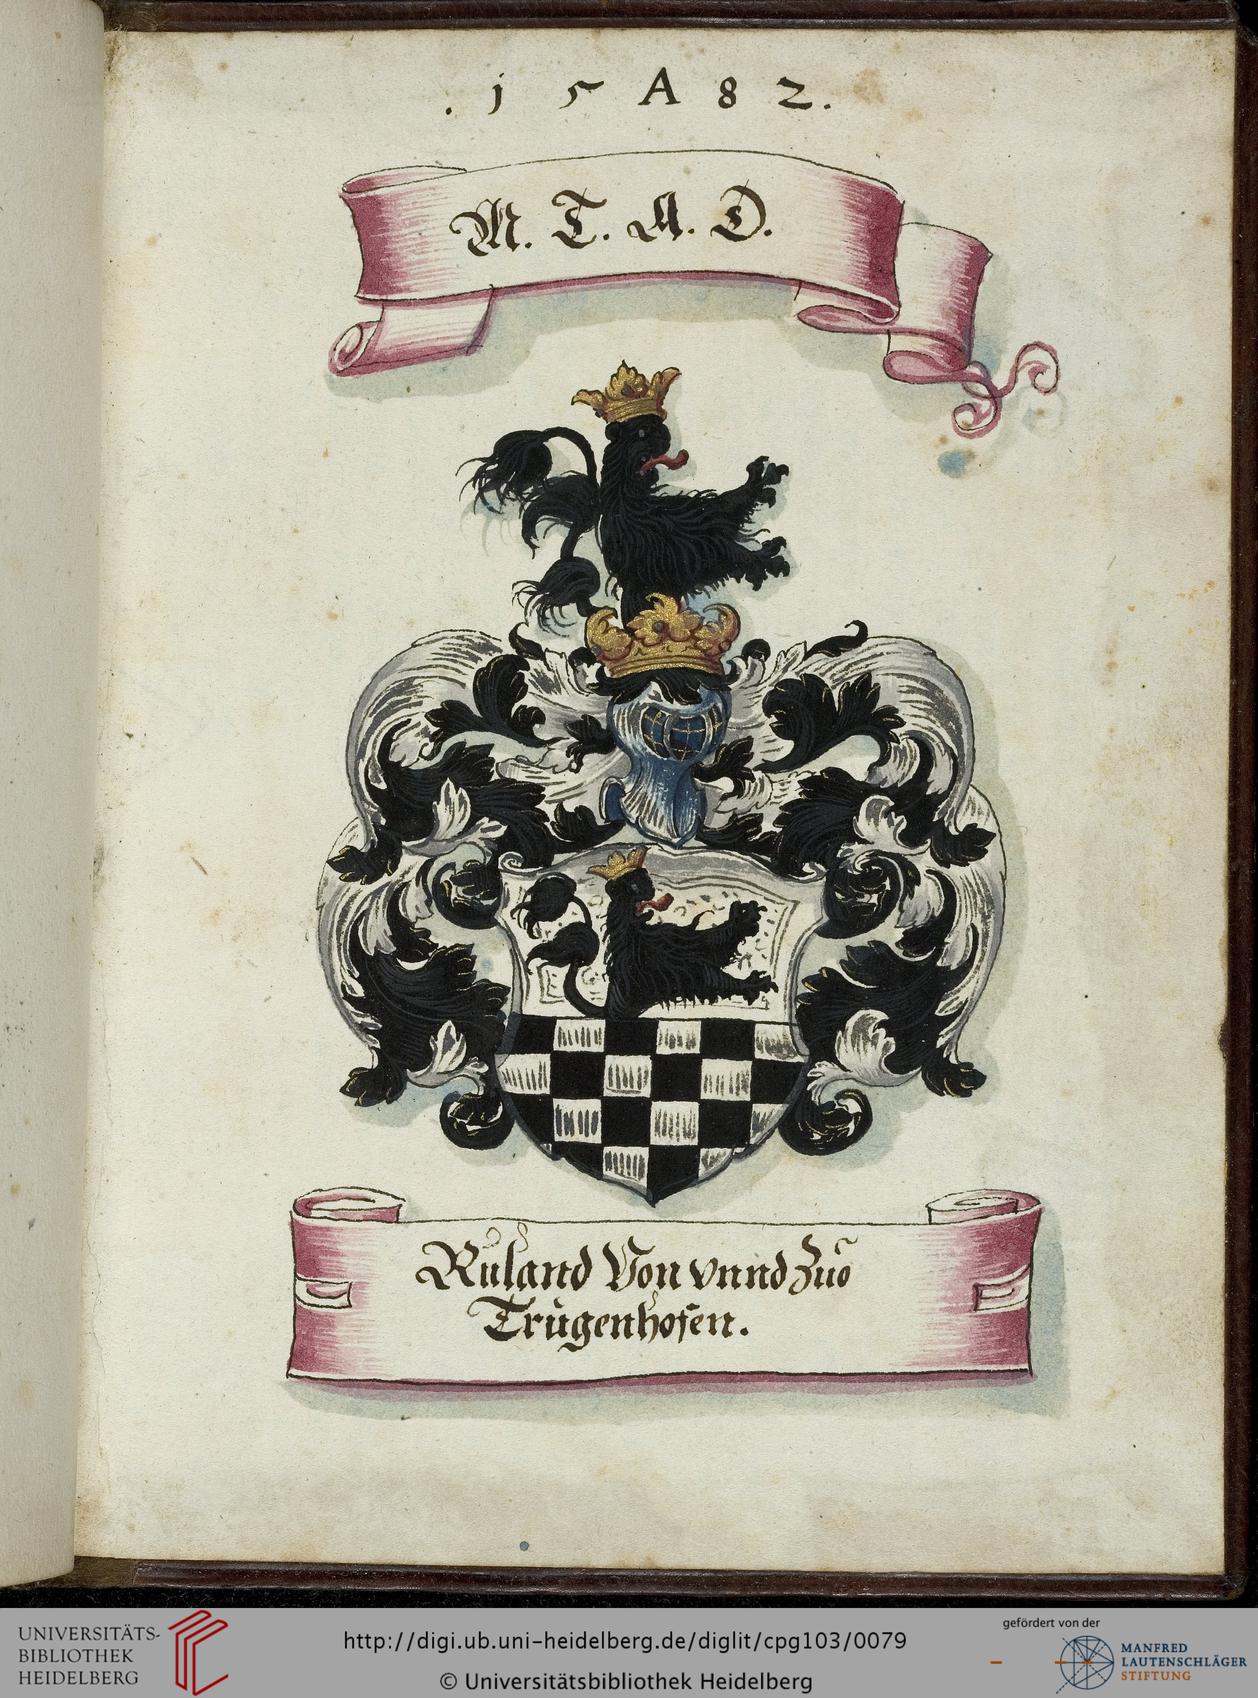 . 1 5 A 8 2 .
M. T. A. D.
Ruland Von vnnd Zuo
Trugenhofen.
UNIVERSITÄTS-
BIBLIOTHEK
HEIDELBERG
http://digi.ub.uni-heidelberg.de/diglit/cpg103/0079
© Universitätsbibliothek Heidelberg
gefördert von der
MANFRED
LAUTENSCHLÄGER
STIFTUNG